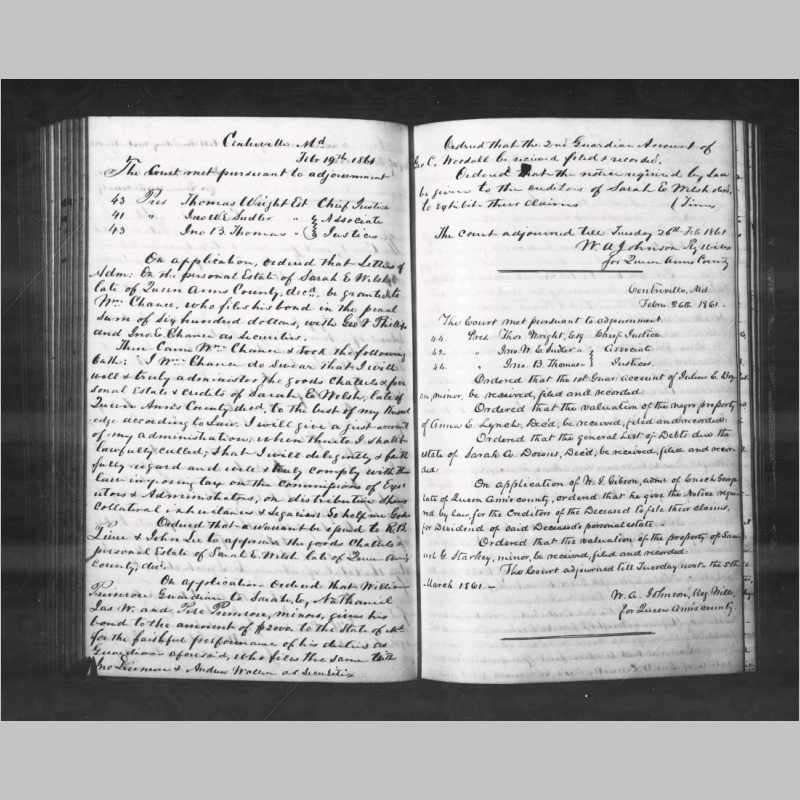 Centreville Md
Feb 19th 1861
The Court met pursuant to adjournment
43 Pres Thomas Wright Est Chief Justice
41 " Jno W. E. Sudler " } Associate
43 " Jno B. Thomas " } Justices
On application, ordered that Letters of
Adm: On the personal Estate of Sarah E Welsh
late of Queen Anns County, decd, be granted to
Wm Chance, who files his bond in the penal
sum of six hundred dollars, with Geo P Phillips
and Jno. E. Chance as securities.
Then Came Wm Chance & took the following
Oath: I Wm Chance do swear that I will
well & truly administer the goods Chatels & per
sonal Estate & credits of Sarah E Welsh, late of
Queen Anns County decd, to the best of my Knowl
edge according to Law. I will give a just account
of my administration, when thereto I shall be
lawfully called; & that I will deligently & faith
fully regard and well & truly comply with the
law imposing tax on the commissions of Exec
utors & Administrators, on distributive Shares
Collateral inheritances & legacies So help me God
Ordered that a warrant be issued to
& John Lee to appraise the goods Chatels &
personal Estate of Sarah E. Welsh late of Queen Anns
County, decd.
On application Ordered that William
Primrose Guardian to Sarah C, Nathaniel
Jas. W. and Pere Primrose, minors, gives his
bond to the amount of $2000. to the State of Md
for the faithful performance of his duties as
Guardian aforesaid, who files the same with
Jno & Andrew Walker as Securities
Ordered that the 2nd Guardian Account of
Geo C. Woodall be received filed & recorded.
Ordered that the notice required by Law
be given to the creditors of Sarah E Welsh decd,
to exhibit their claims (Times
The court adjourned till Tuesday 26th Feb 1861
W. A Johnson Reg Wills
for Queen Anns County
Centreville, Md.
Febru 26th 1861.
The Court met pursuant to adjournment
44. Pres Thos Wright, Esq Chief Justice
42. " Jno W. E. Sudler " } Associate
44. " Jno. B. Thomas " } Justices.
Ordered that the 1st Guar account of
minor, be received, filed and recorded
Ordered that the valuation of the negro property
of Anna E. Lynch, Dec'd, be received, filed and recorded.
Ordered that the general List of Debts due the
estate of Sarah Co. Downs, Dec'd, be received, filed and recor-
ded.
On application of W. J. Gibson, admr of Enoch George
late of Queen Ann's county, ordered that he give the Notice requi-
red by law, for the Creditors of the Deceased to file their claims,
for Dividend of said Deceased's personal estate.
Ordered that the valuation of the property of Sam-
uel G. Starkey, minor, be received, filed and recorded.
The Court adjourned till Tuesday next the 5th
March 1861.
W. A. Johnson, Reg Wills,
for Queen Ann's county